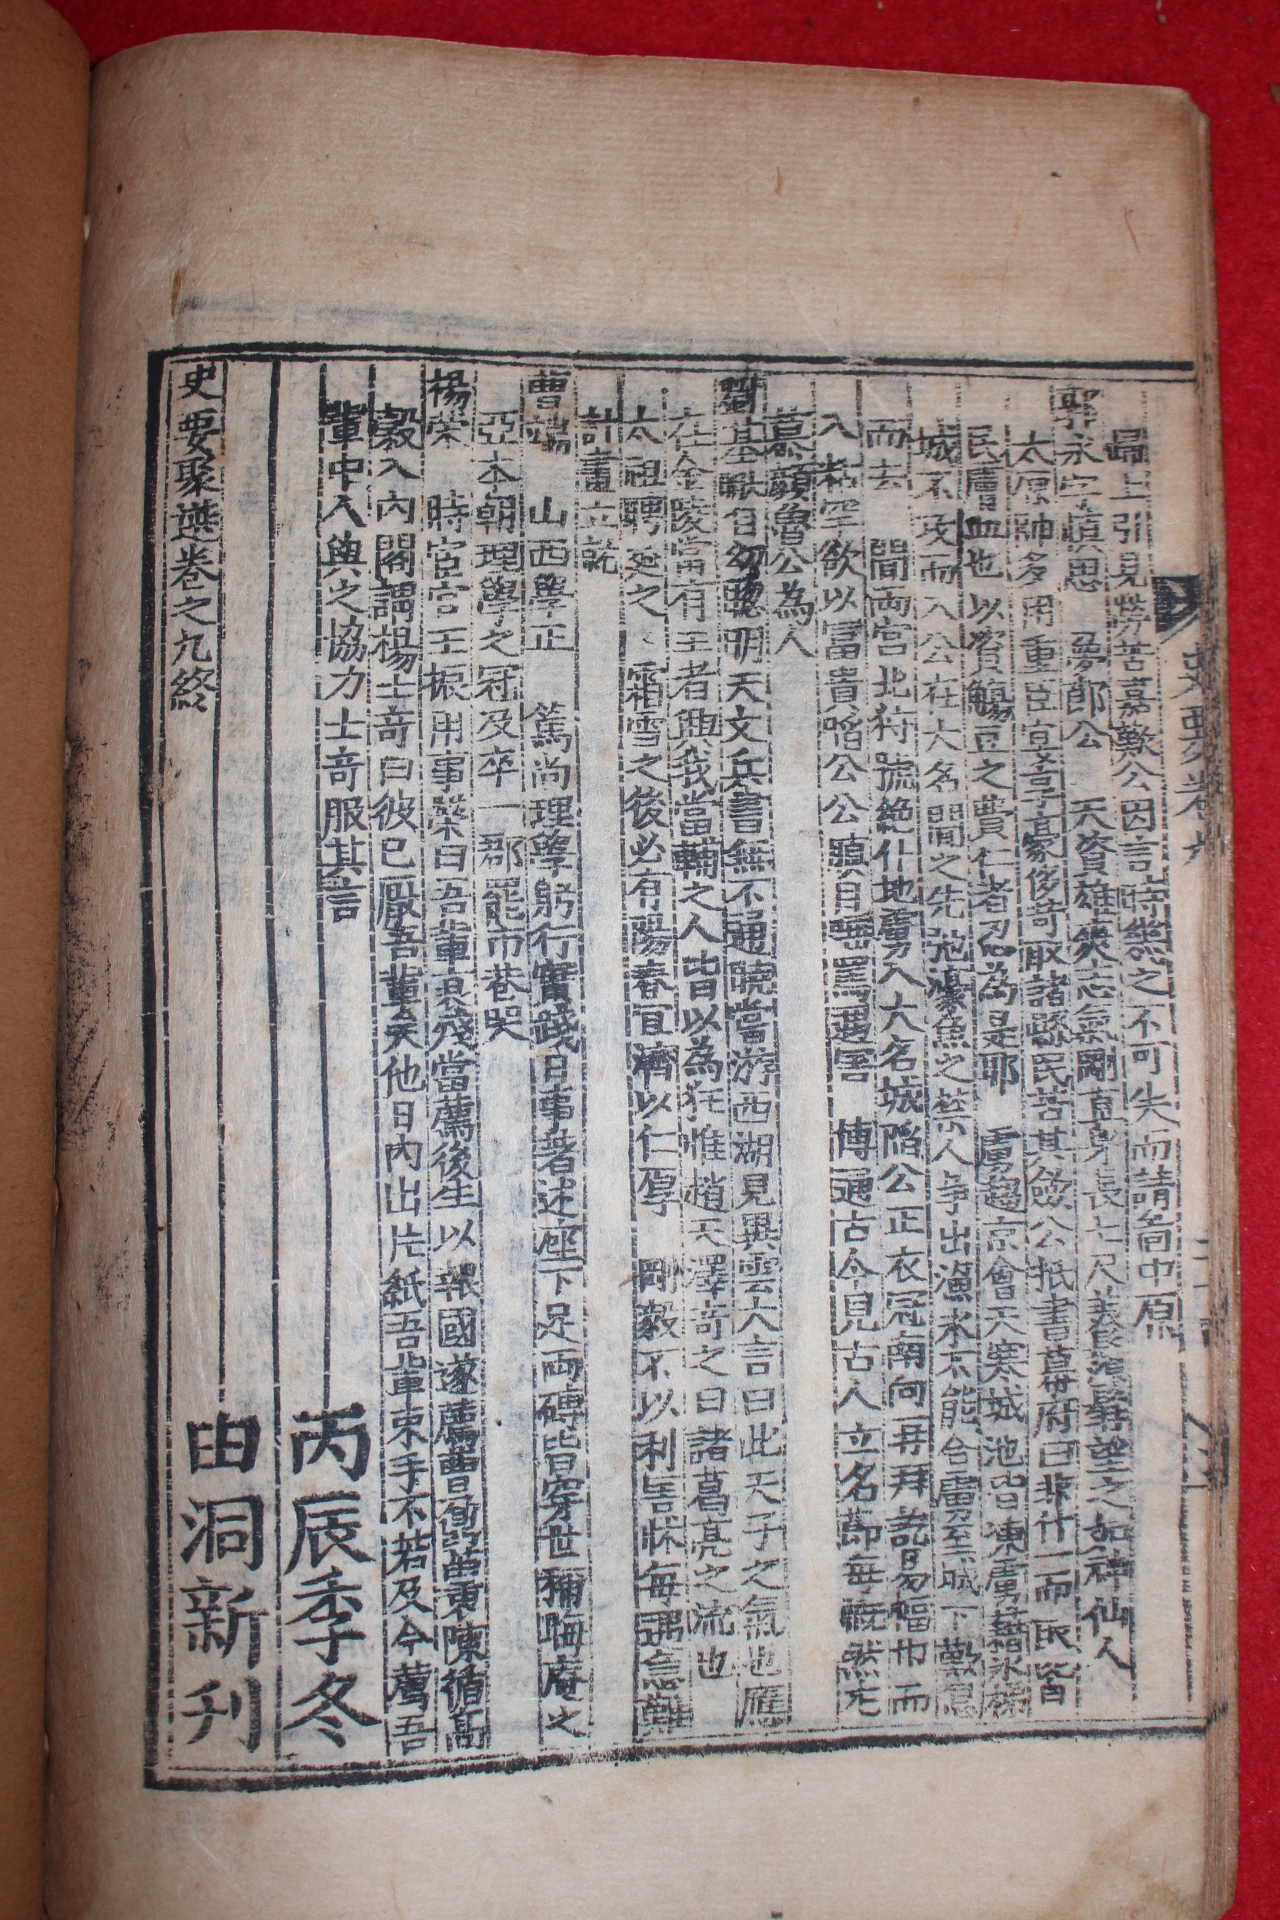 歸上引見勞苦嘉歎公因言時哉之不可失而請啇中原
郭永字愼思 蔘郞公 天資雄𠆢志氣剛直身長七尺美須髥望之如神仙人
太原帥多用重臣宴享豪侈竒取諸縣民苦其斂公抵書幕府曰非什一而取皆
民膏血也以資觴豆之費仁者忍爲是耶 虜趨京會天寒城池皆凍虜藉氷梯
城不攻而入公在大名聞之先弛濠魚之禁人爭出漁氷不能合虜至城下歎息
而去 聞兩宮北狩號絶仆地虜入大名城陷公正衣冠南向再拜訖易幅巾而
入粘罕欲以富貴啗公公瞋目罵遇害 博通古今見古人立名節每慨然尤
慕顔魯公爲人
劉基 聡明天文兵書無不通曉嘗游西湖見異雲大言曰此天子之氣也應
在金陵當有王者興我當輔之人皆以爲狂惟趙天澤竒之曰諸葛亮之流也
太祖聘延之 霜雪之後必有陽春宜濟以仁厚 剛毅不以利害怵每遇急難
計畫立就
曹端 山西學正 篤尚理學躬行實踐日事著述座下足兩磚皆穿世稱晦庵之
亞本朝理學之冠及卒一郡罷市巷哭
楊榮 時宦官王振用事榮曰吾輩衰殘當薦後生以報國遂薦曹鼐苗衷陳循高
穀入內閣謂楊士竒曰彼已厭吾輩矣他日內出片紙吾輩束手不若及今薦吾
輩中入與之協力士竒服其言
丙辰季冬
史要聚選卷之九終
由洞新刊